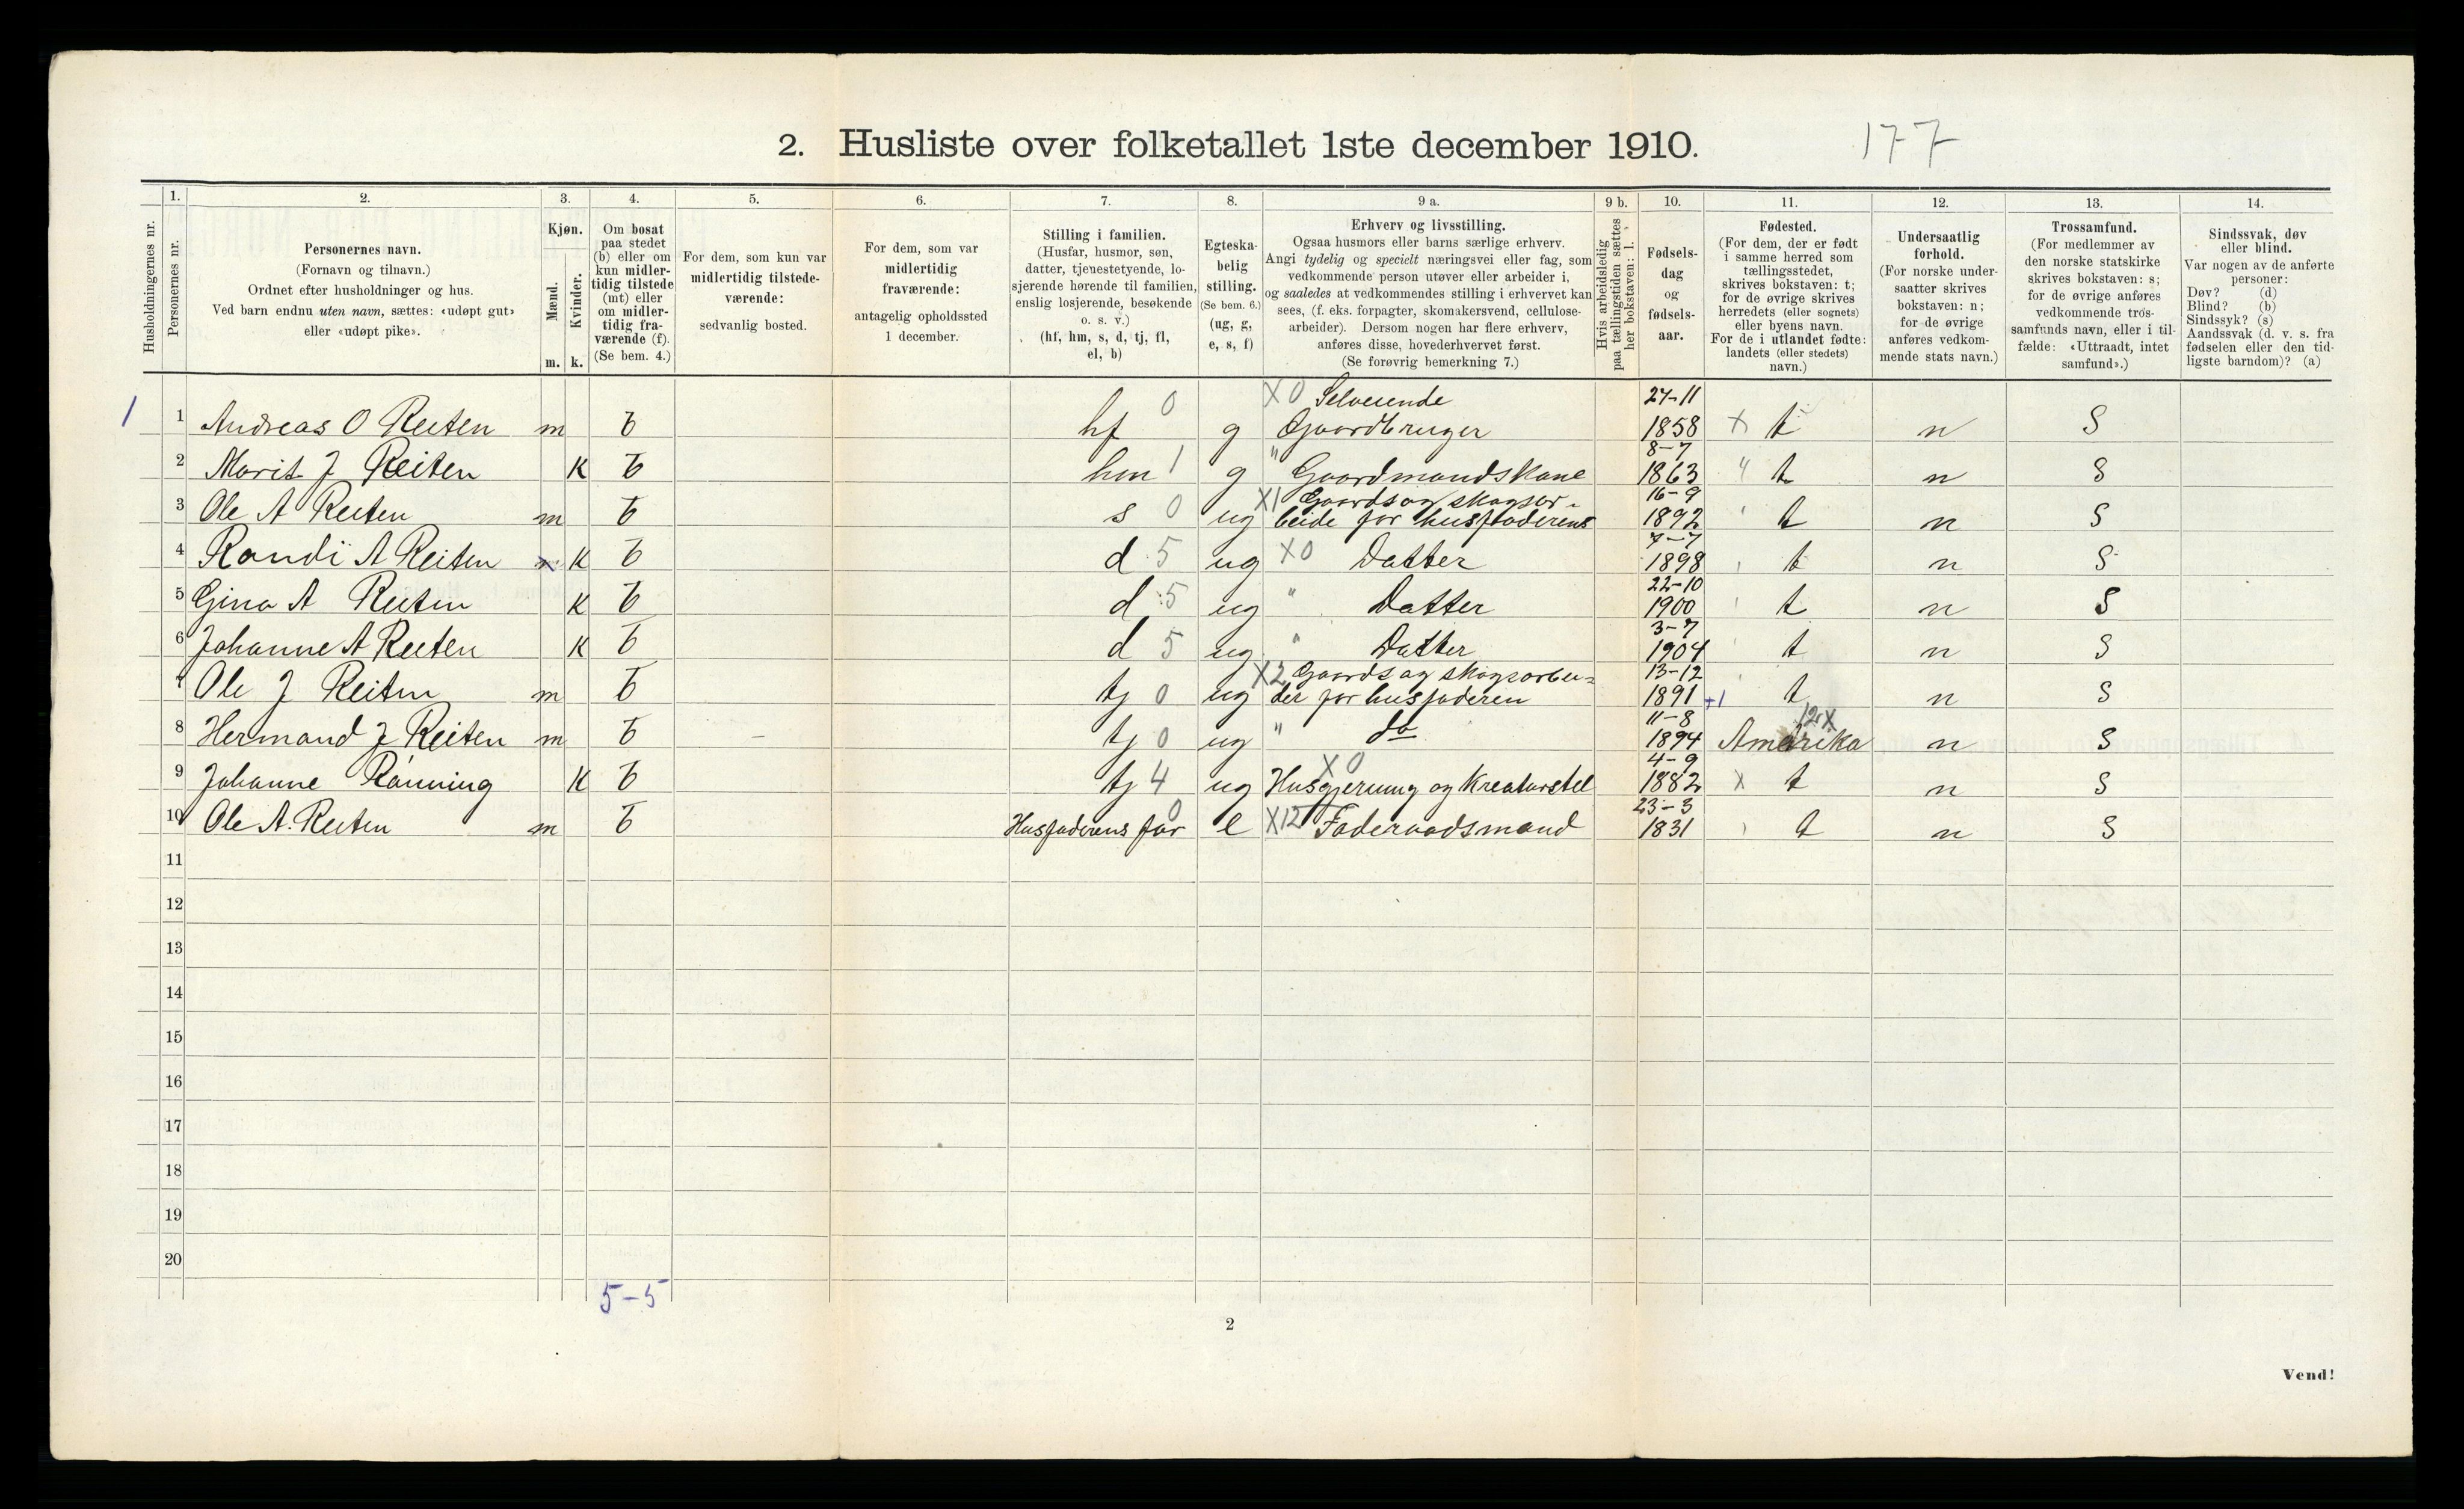 2. Husliste over folketallet 1ste december 1910. 177
1. 2. 3. 4. 5. 6. 7. 8. 9 a. 9 b. 10. 11. 12. 13. 14.
Husholdningernes nr.
Personernes nr.
Personernes navn.
(Fornavn og tilnavn.)
Ordnet efter husholdninger og hus.
Ved barn endnu uten navn, sættes: «udøpt gut»
eller «udøpt pike».
Kjøn.
Mænd.
Kvinder.
m. k.
Om bosat
paa stedet
(b) eller om
kun midler-
tidig tilstede
(mt) eller
om midler-
tidig fra-
værende (f).
(Se bem. 4.)
For dem, som kun var
midlertidig tilstede-
værende:
sedvanlig bosted.
For dem, som var
midlertidig
fraværende:
antagelig opholdssted
1 december.
Stilling i familien.
(Husfar, husmor, søn,
datter, tjenestetyende, lo-
sjerende hørende til familien,
enslig losjerende, besøkende
o. s. v.)
(hf, hm, s, d, tj, fl,
el, b)
Egteska-
belig
stilling.
(Se bem. 6.)
(ug, g,
e, s, f)
Erhverv og livsstilling.
Ogsaa husmors eller barns særlige erhverv.
Angi tydelig og specielt næringsvei eller fag, som
vedkommende person utøver eller arbeider i,
og saaledes at vedkommendes stilling i erhvervet kan
sees, (f. eks. forpagter, skomakersvend, cellulose-
arbeider). Dersom nogen har flere erhverv,
anføres disse, hovederhvervet først.
(Se forøvrig bemerkning 7.)
Hvis arbeidsledig
paa tællingstiden sættes
her bokstaven: l.
Fødsels-
dag
og
fødsels-
aar.
Fødested.
(For dem, der er født
i samme herred som
tællingsstedet,
skrives bokstaven: t;
for de øvrige skrives
herredets (eller sognets)
eller byens navn.
For de i utlandet fødte:
landets (eller stedets)
navn.)
Undersaatlig
forhold.
(For norske under-
saatter skrives
bokstaven: n;
for de øvrige
anføres vedkom-
mende stats navn.)
Trossamfund.
(For medlemmer av
den norske statskirke
skrives bokstaven: s;
for de øvrige anføres
vedkommende tros-
samfunds navn, eller i til-
fælde: «Uttraadt, intet
samfund».)
Sindssvak, døv
eller blind.
Var nogen av de anførte
personer:
Døv? (d)
Blind? (b)
Sindssyk? (s)
Aandssvak (d. v. s. fra
fødselen eller den tid-
ligste barndom)? (a)
X 0 Selveiende 27-11
1 1 Andreas O Reiten m b hf 0 g Gaardbruger 1858 X t n S
8-7
2 Marit J Reiten K b hm 1 g " Gaardmandskone 1863 " t n S
X1 Gaards og skogsar- 16-9
3 Ole A Reiten m b s 0 ug beide for husfaderens 1892 t n S
7-7
4 Randi A Reiten K b d 5 ug X0 Datter 1898 t n S
22-10
5 Gina A Reiten K b d 5 ug " Datter 1900 t n S
3-7
6 Johanne A Reiten K b d 5 ug " Datter 1904 t n S
X2 Gaards og skogsarbei= 13-12
7 Ole J Reiten m b tj 0 ug der for husfaderen 1891 +1 t n S
11-8 12X
8 Hermand J Reiten m b tj 0 ug " do 1894 Amerika n S
X 0 4-9
9 Johanne Rønning K b tj 4 ug Husgjerning og Kreaturstel 1882 X t n S
23-3
10 Ole A. Reiten m b Husfaderens far 0 e X12 Føderaadsmand 1831 t n S
11
12
13
14
15
16
17
18
19
20
5-5
2
Vend!